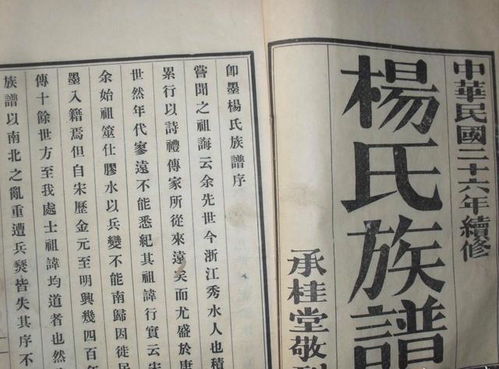 中華民國二十六年續修
楊氏族譜
承桂堂敬
即墨楊氏族譜序
嘗聞之祖誨云余先世今浙江秀水人也積
累行以詩禮傳家所從來遠矣而尤盛於唐
世然年代寥遠不能悉紀其祖諱行實云宋
余始祖筮仕膠水以兵變不能南歸因徙民
墨入籍焉但自宋歷金元至明興幾四百年
傳十餘世方至我處士祖諱均道者也然
族譜以南北之亂重遭兵燹皆失其序不